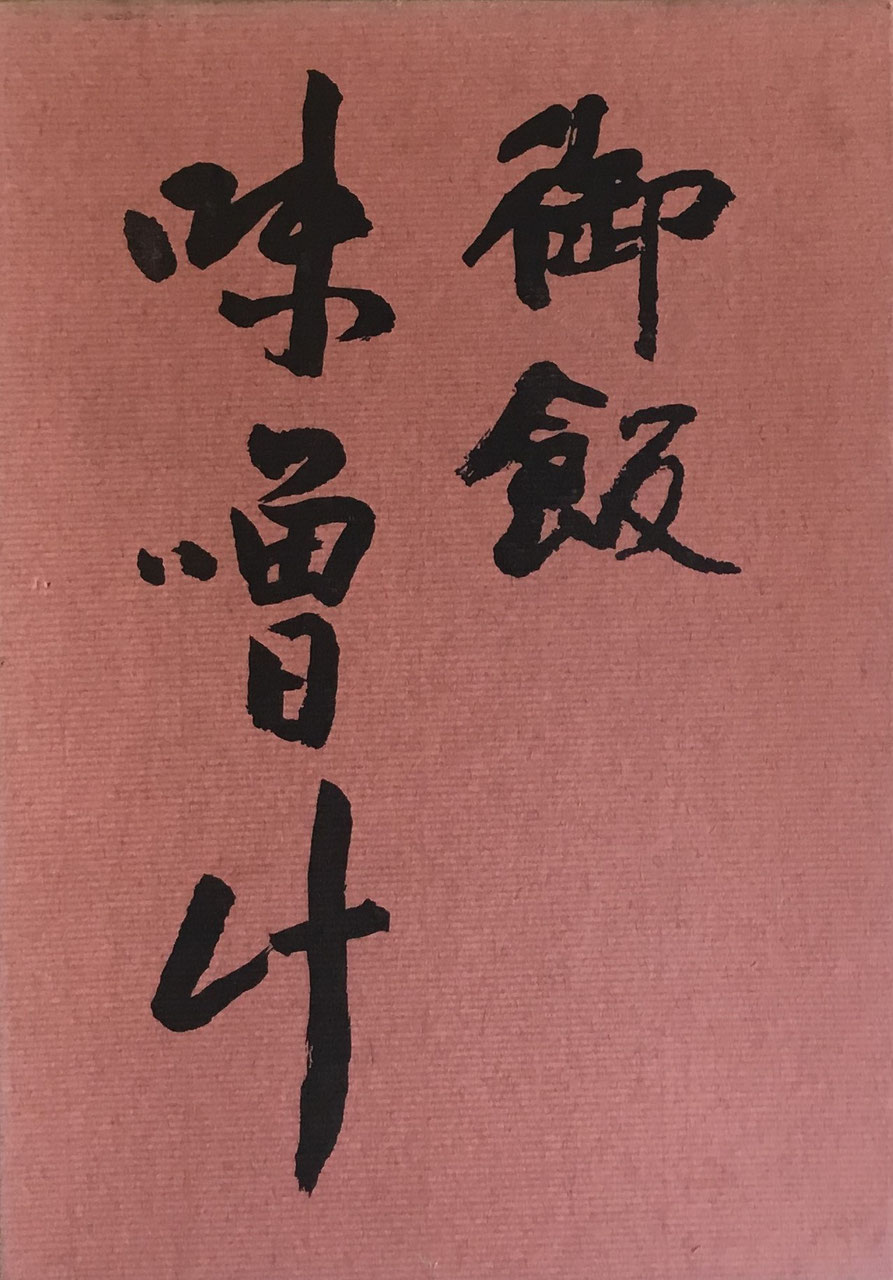 御飯
味噌汁